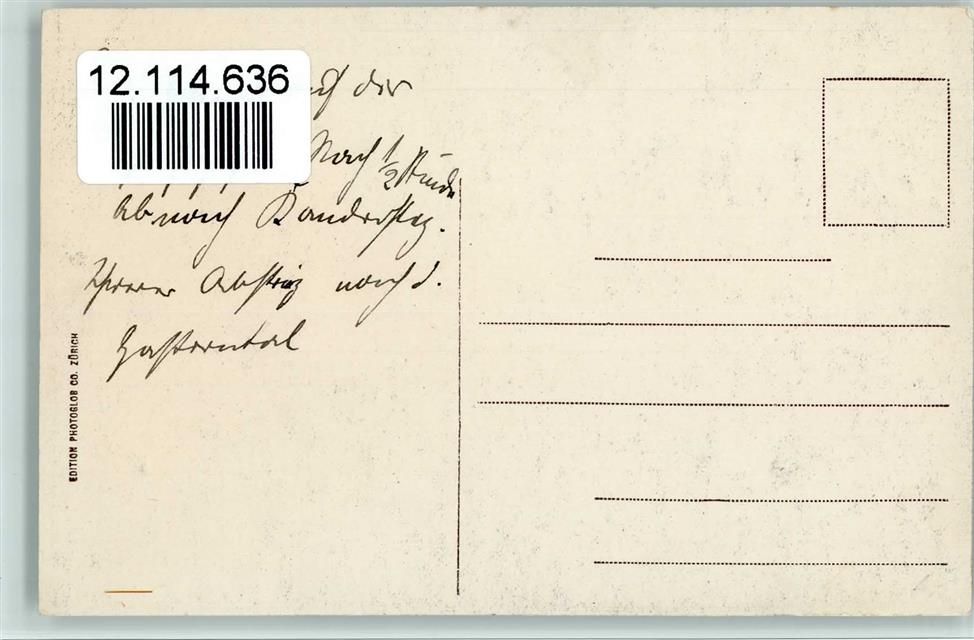 12.114.636
der
Nach 1/2 Stunde
ab nach Kandersteg.
Abstieg nach d.
Gasterntal
EDITION PHOTOGLOB CO. ZÜRICH